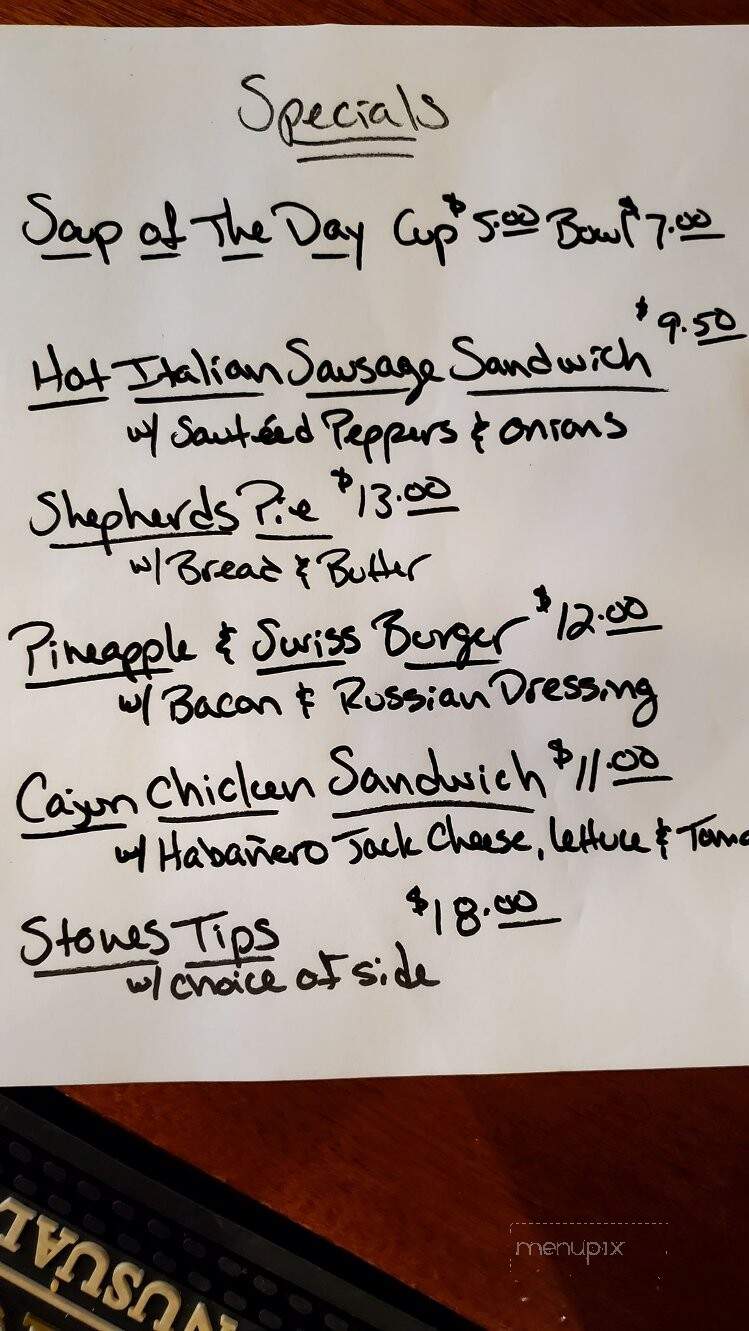 Specials
Soup of The Day Cup $5.00 Bowl $7.00
$9.50
Hot Italian Sausage Sandwich
w/ Sautéed Peppers & onions
Shepherds Pie $13.00
w/ Bread & Butter
Pineapple & Swiss Burger $12.00
w/ Bacon & Russian Dressing
Cajun Chicken Sandwich $11.00
w/ Habañero Jack Cheese, lettuce & Toma
Stones Tips $18.00
w/ choice of side
NUSUAL
menupix